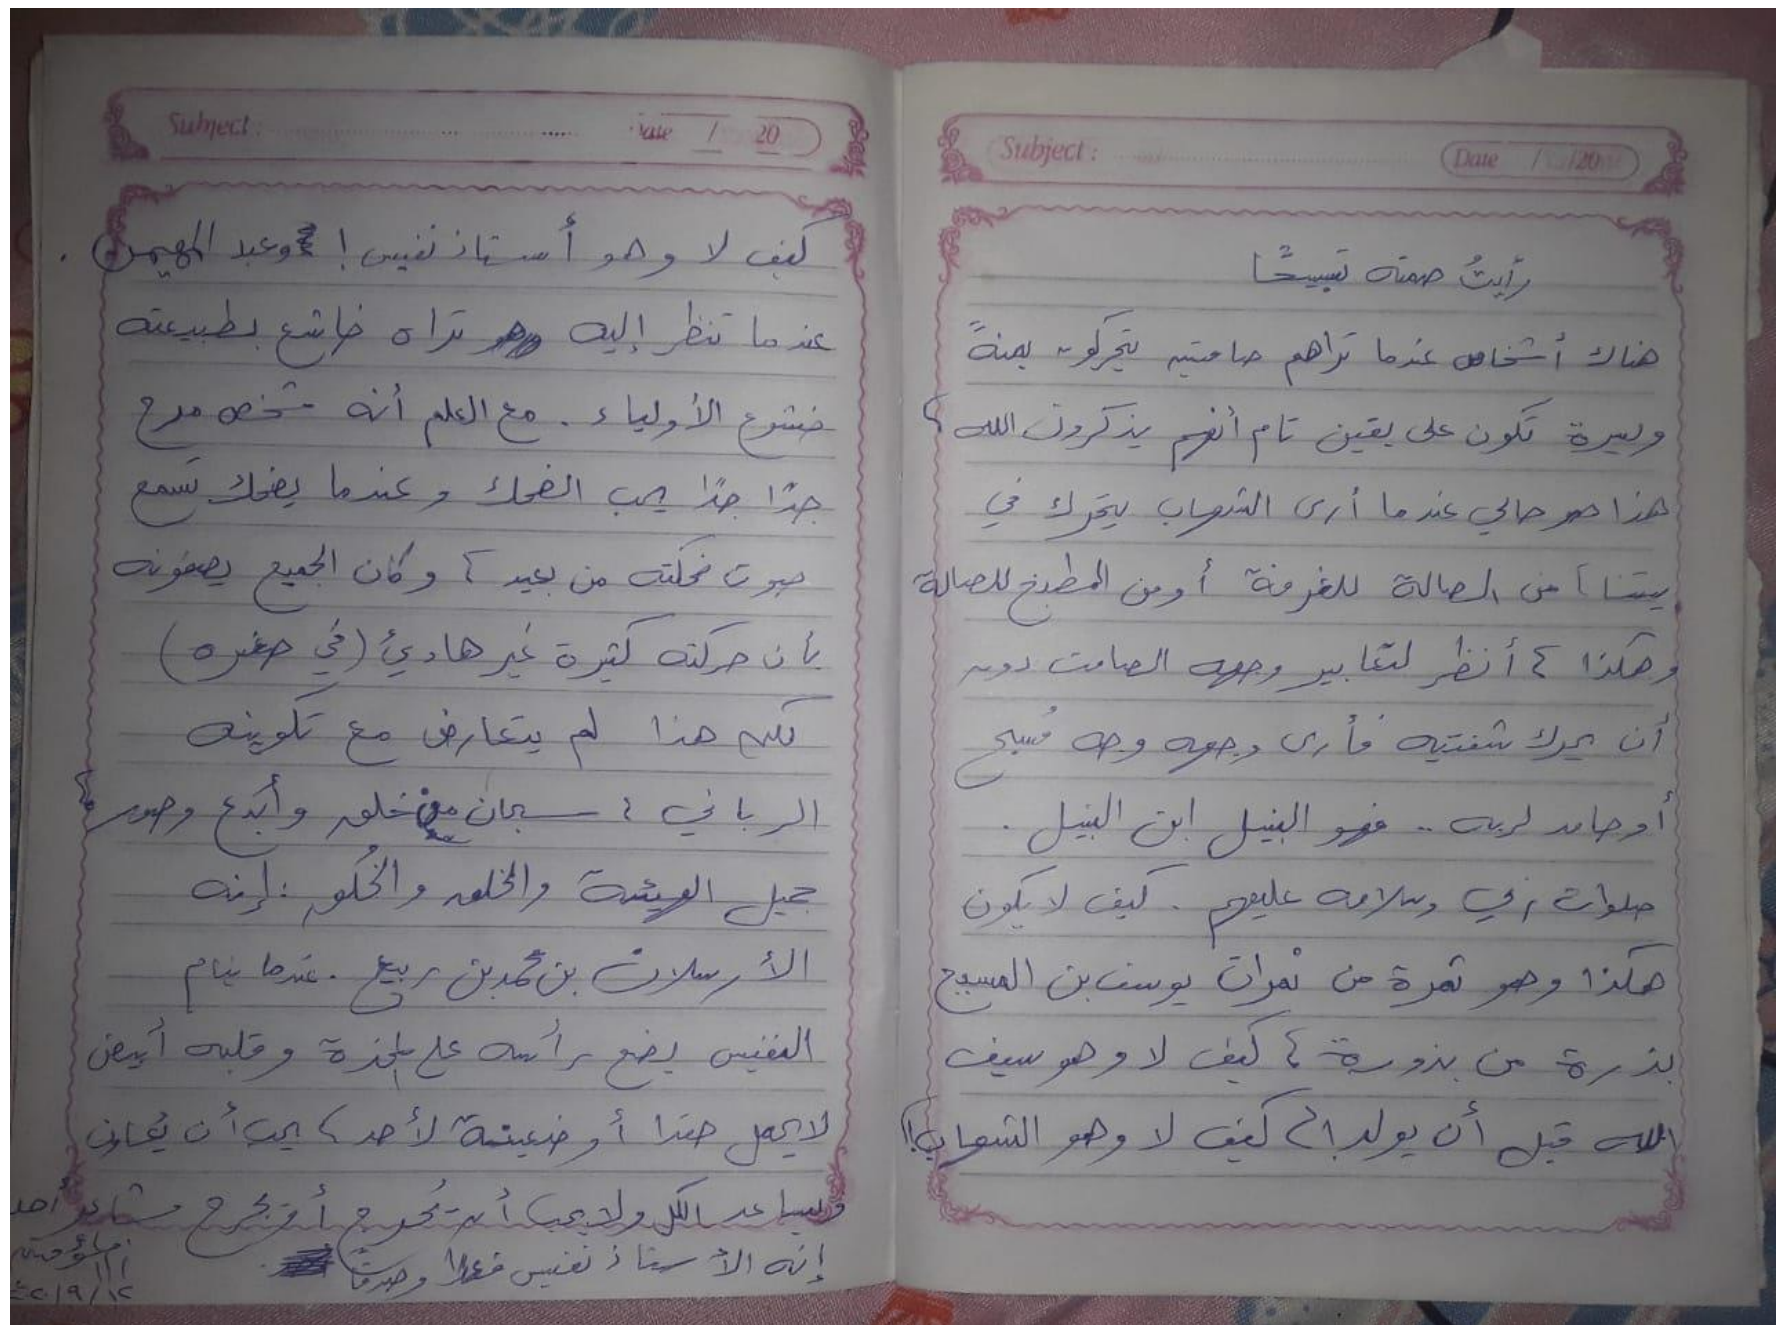 Subject :
Date / /20
رأيتُ صمته تسبيحًا
هناك أشخاص عندما تراهم صامتين يتحركون يمنةً
ويسرة تكون على يقين تام أنهم يذكرون الله ؟
هذا هو حالي عندما أرى الشهاب يتحرك في
بيتنا ، من الصالة للغرفة أو من المطبخ للصالة
وهكذا ، أنظر لتعابير وجهه الصامت دون
أن يحرك شفتيه فأرى وجهه وجه مُسبح
أو حامد لربه .. فهو النبيل ابن النبيل .
صلوات ربي وسلامه عليهم . كيف لا يكون
هكذا وهو ثمرة من ثمرات يوسف بن المسيح
بذرة من بذوره ، كيف لا وهو سيف
الله قبل أن يولد !؟ كيف لا وهو الشهاب !
Subject :
Date / 20
كيف لا وهو أستاذ نفيس ! وعبد المهيمن .
عندما تنظر إليه تراه خاشع بطبيعته
خشوع الأولياء . مع العلم أنه شخص مرح
جدًا جدًا يحب الضحك وعندما يضحك تسمع
صوت ضحكته من بعيد ، وكان الجميع يصفونه
بأن حركته كثيرة غير هاديء (في صغره)
لكن هذا لم يتعارض مع تكوينه
الرباني ، سبحان من خلق وأبدع وصور ،
جميل الهيئة والخلق والخُلق : إنه
الأرسلان بن محمد بن ربيع . عندما ينام
النفيس يضع رأسه على المخدة وقلبه أبيض
لا يحمل حقدا أو ضغينة لأحد ، يحب أن يُعاون
ويساعد الكل ولا يحب أن يُحرج أو يجرح مشاعر أحد
إنه الأستاذ نفيس فعلا وصدقا